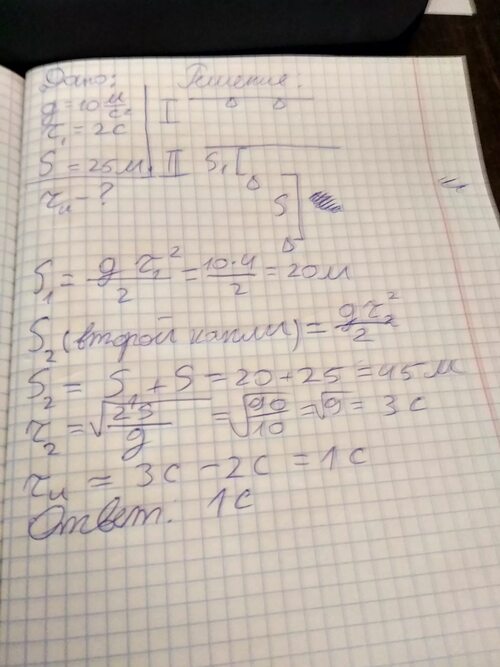 Дано: Решение:
g = 10 м/с² I
τ₁ = 2с
S = 25м II S₁ S
τи - ?
S₁ = g τ₁²/2 = 10·4/2 = 20м
S₂ (второй капли) = gτ₂²/2
S₂ = S₁ + S = 20 + 25 = 45 м
τ₂ = √2S/g = √90/10 = √9 = 3с
τи = 3с - 2с = 1с
Ответ: 1с